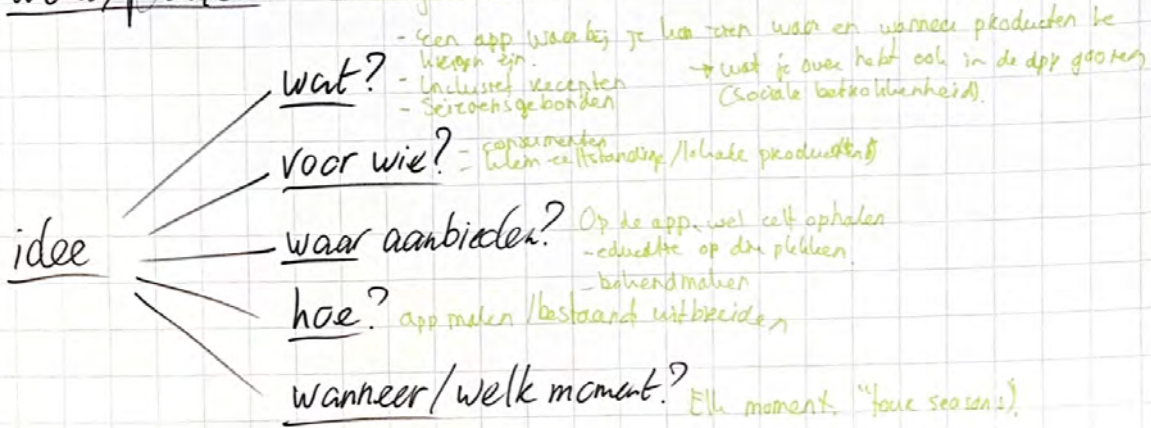 - Een app waarbij je kan zien waar en wanneer producten te
zijn.
wat?
- Inclusief recepten
- Seizoensgebonden
→ wat je over hebt ook in de app gooien
(sociale betrokkenheid).
voor wie?
- consumenten
- klein-zelfstandige / lokale producten
idee
waar aanbieden? Op de app, wel zelf ophalen
- educatie op die plekken.
- bekend maken
hoe? app maken / bestaand uitbreiden
wanneer / welk moment? Elk moment. "four seasons).